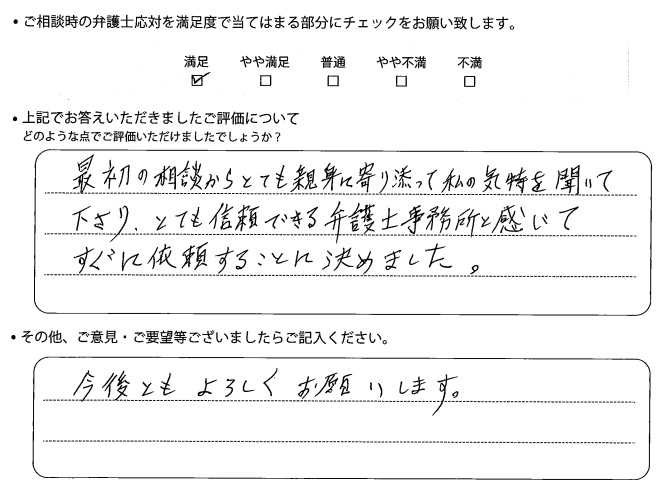 ・ご相談時の弁護士応対を満足度で当てはまる部分にチェックをお願い致します。
満足 やや満足 普通 やや不満 不満
・上記でお答えいただきましたご評価について
どのような点でご評価いただけましたでしょうか？
最初の相談からとても親身に寄り添って私の気持を聞いて
下さり、とても信頼できる弁護士事務所と感じて
すぐに依頼することに決めました。
・その他、ご意見・ご要望等ございましたらご記入ください。
今後ともよろしくお願いします。